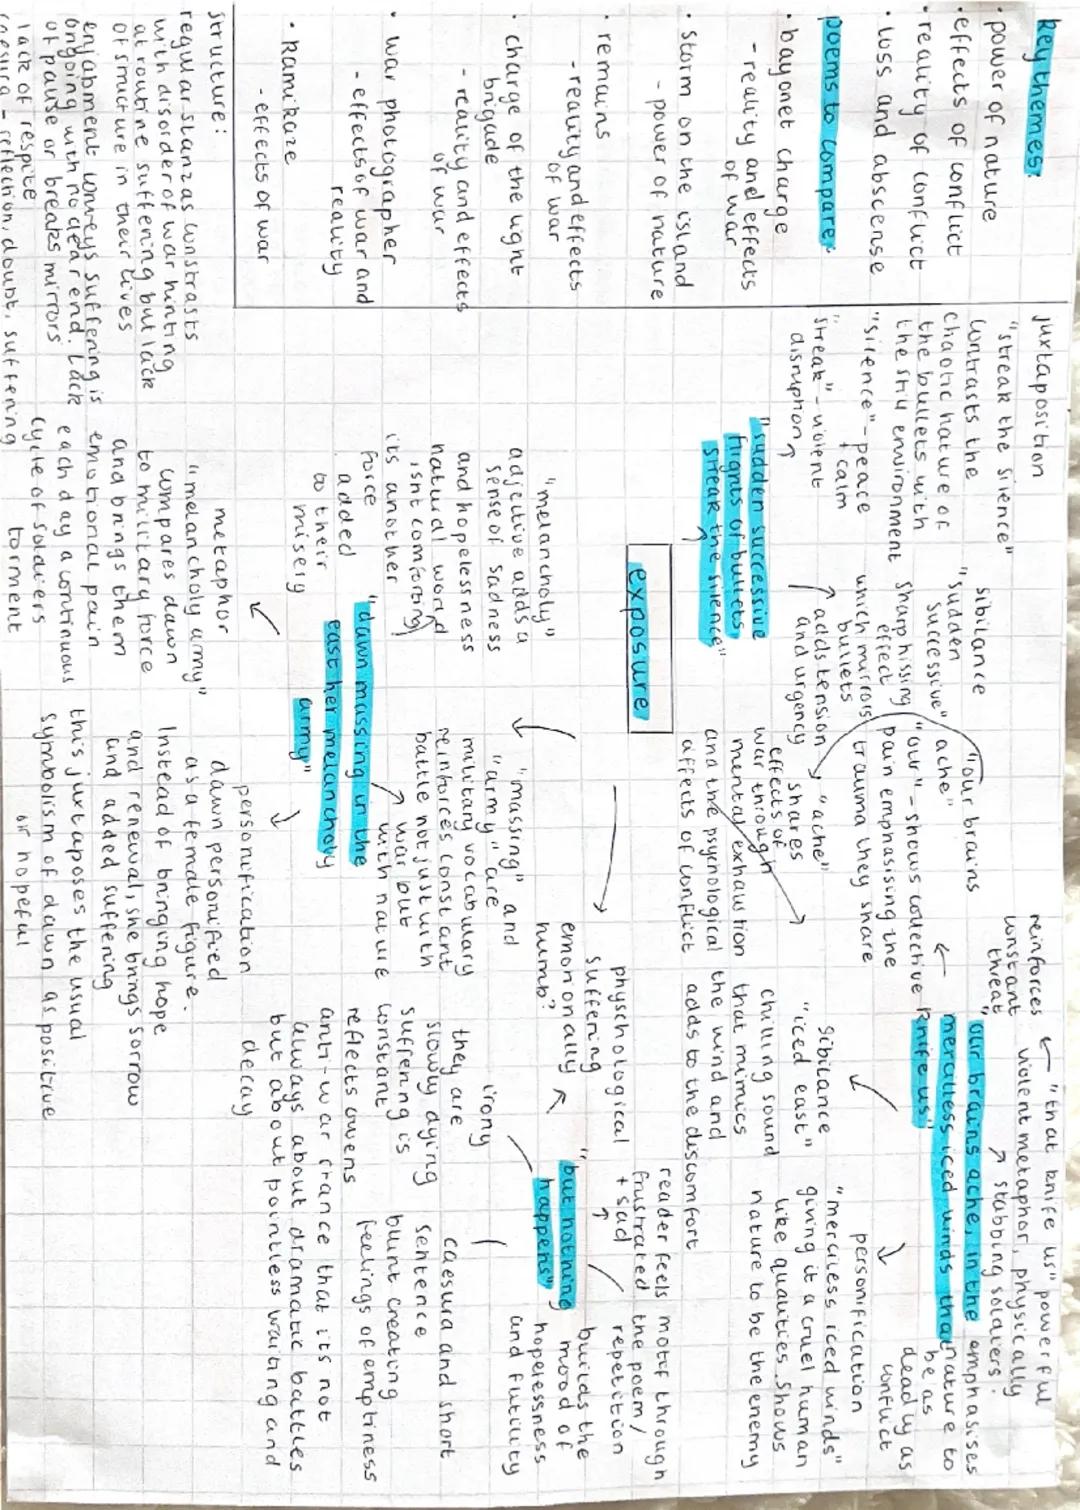 key themes:
· power of nature
· effects of conflict
· reality of conflict
· loss and abscense
poems to compare:
· bayonet charge
- reality and effects
of war
· storm on the island
- power of nature
· remains
- reality and effects
of war
· charge of the light
brigade
- reality and effects
of war
· war photographer
- effects of war and
reality
· Kamikaze
- effects of war
structure:
regular stanzas constrasts
with disorder of war hinting
at routine suffering but lack
of structure in their lives
enjabment conveys suffering is
ongoing with no clear end. Lack
of pause or breaks mirrors
lack of respite
caesura - reflection, doubt, suffering
juxtaposition
"streak the silence"
contrasts the
chaotic nature of
the bullets with
the still environment
"silence" - peace
+ calm
"streak" - violent
disruption
sibilance
"sudden
successive"
sharp hissing
effect
which mirrors
bullets
adds tension
and urgency
"sudden successive
flights of bullets
streak the silence"
exposure
"our brains
ache"
"our" - shows collective
pain emphasising the
trauma they share
"ache"
shares
effects of
war through
mental exhaustion
and the psychological
affects of conflict
reinforces
constant
threat
"that knife us" powerful
violent metaphor, physically
stabbing soldiers.
"our brains ache, in the
merciless iced winds that
knife us"
emphasises
nature to
be as
deadly as
conflict
sibilance
"iced east"
chilling sound
that mimics
the wind and
adds to the discomfort
personification
"merciless iced winds"
giving it a cruel human
like qualities. Shows
nature to be the enemy
"melancholy"
adjective adds a
sense of sadness
and hopelessness
natural world
isnt comforting
its another
force
added
to their
misery
"massing" and
"army" are
military vocabulary
reinforces constant
battle not just with
war but
with nature
"dawn massing in the
east her melancholy
army"
metaphor
"melancholy army"
compares dawn
to military force
and brings them
emotional pain
each day a continuous
cycle of soldiers
torment
personification
dawn personified
as a female figure.
Instead of bringing hope
and renewal, she brings sorrow
and added suffering
this juxtaposes the usual
symbolism of dawn as positive
or hopeful
physchological
suffering
emotionally
numb?
reader feels
frustrated
+ sad
motif through
the poem/
repetition
builds the
mood of
hopelessness
and futility
"but nothing
happens"
irony
they are
slowly dying
suffering is
constant
reflects owens
anti-war stance that its not
always about dramatic battles
but about pointless waiting and
decay
caesura and short
sentence
blunt creating
feelings of emptiness